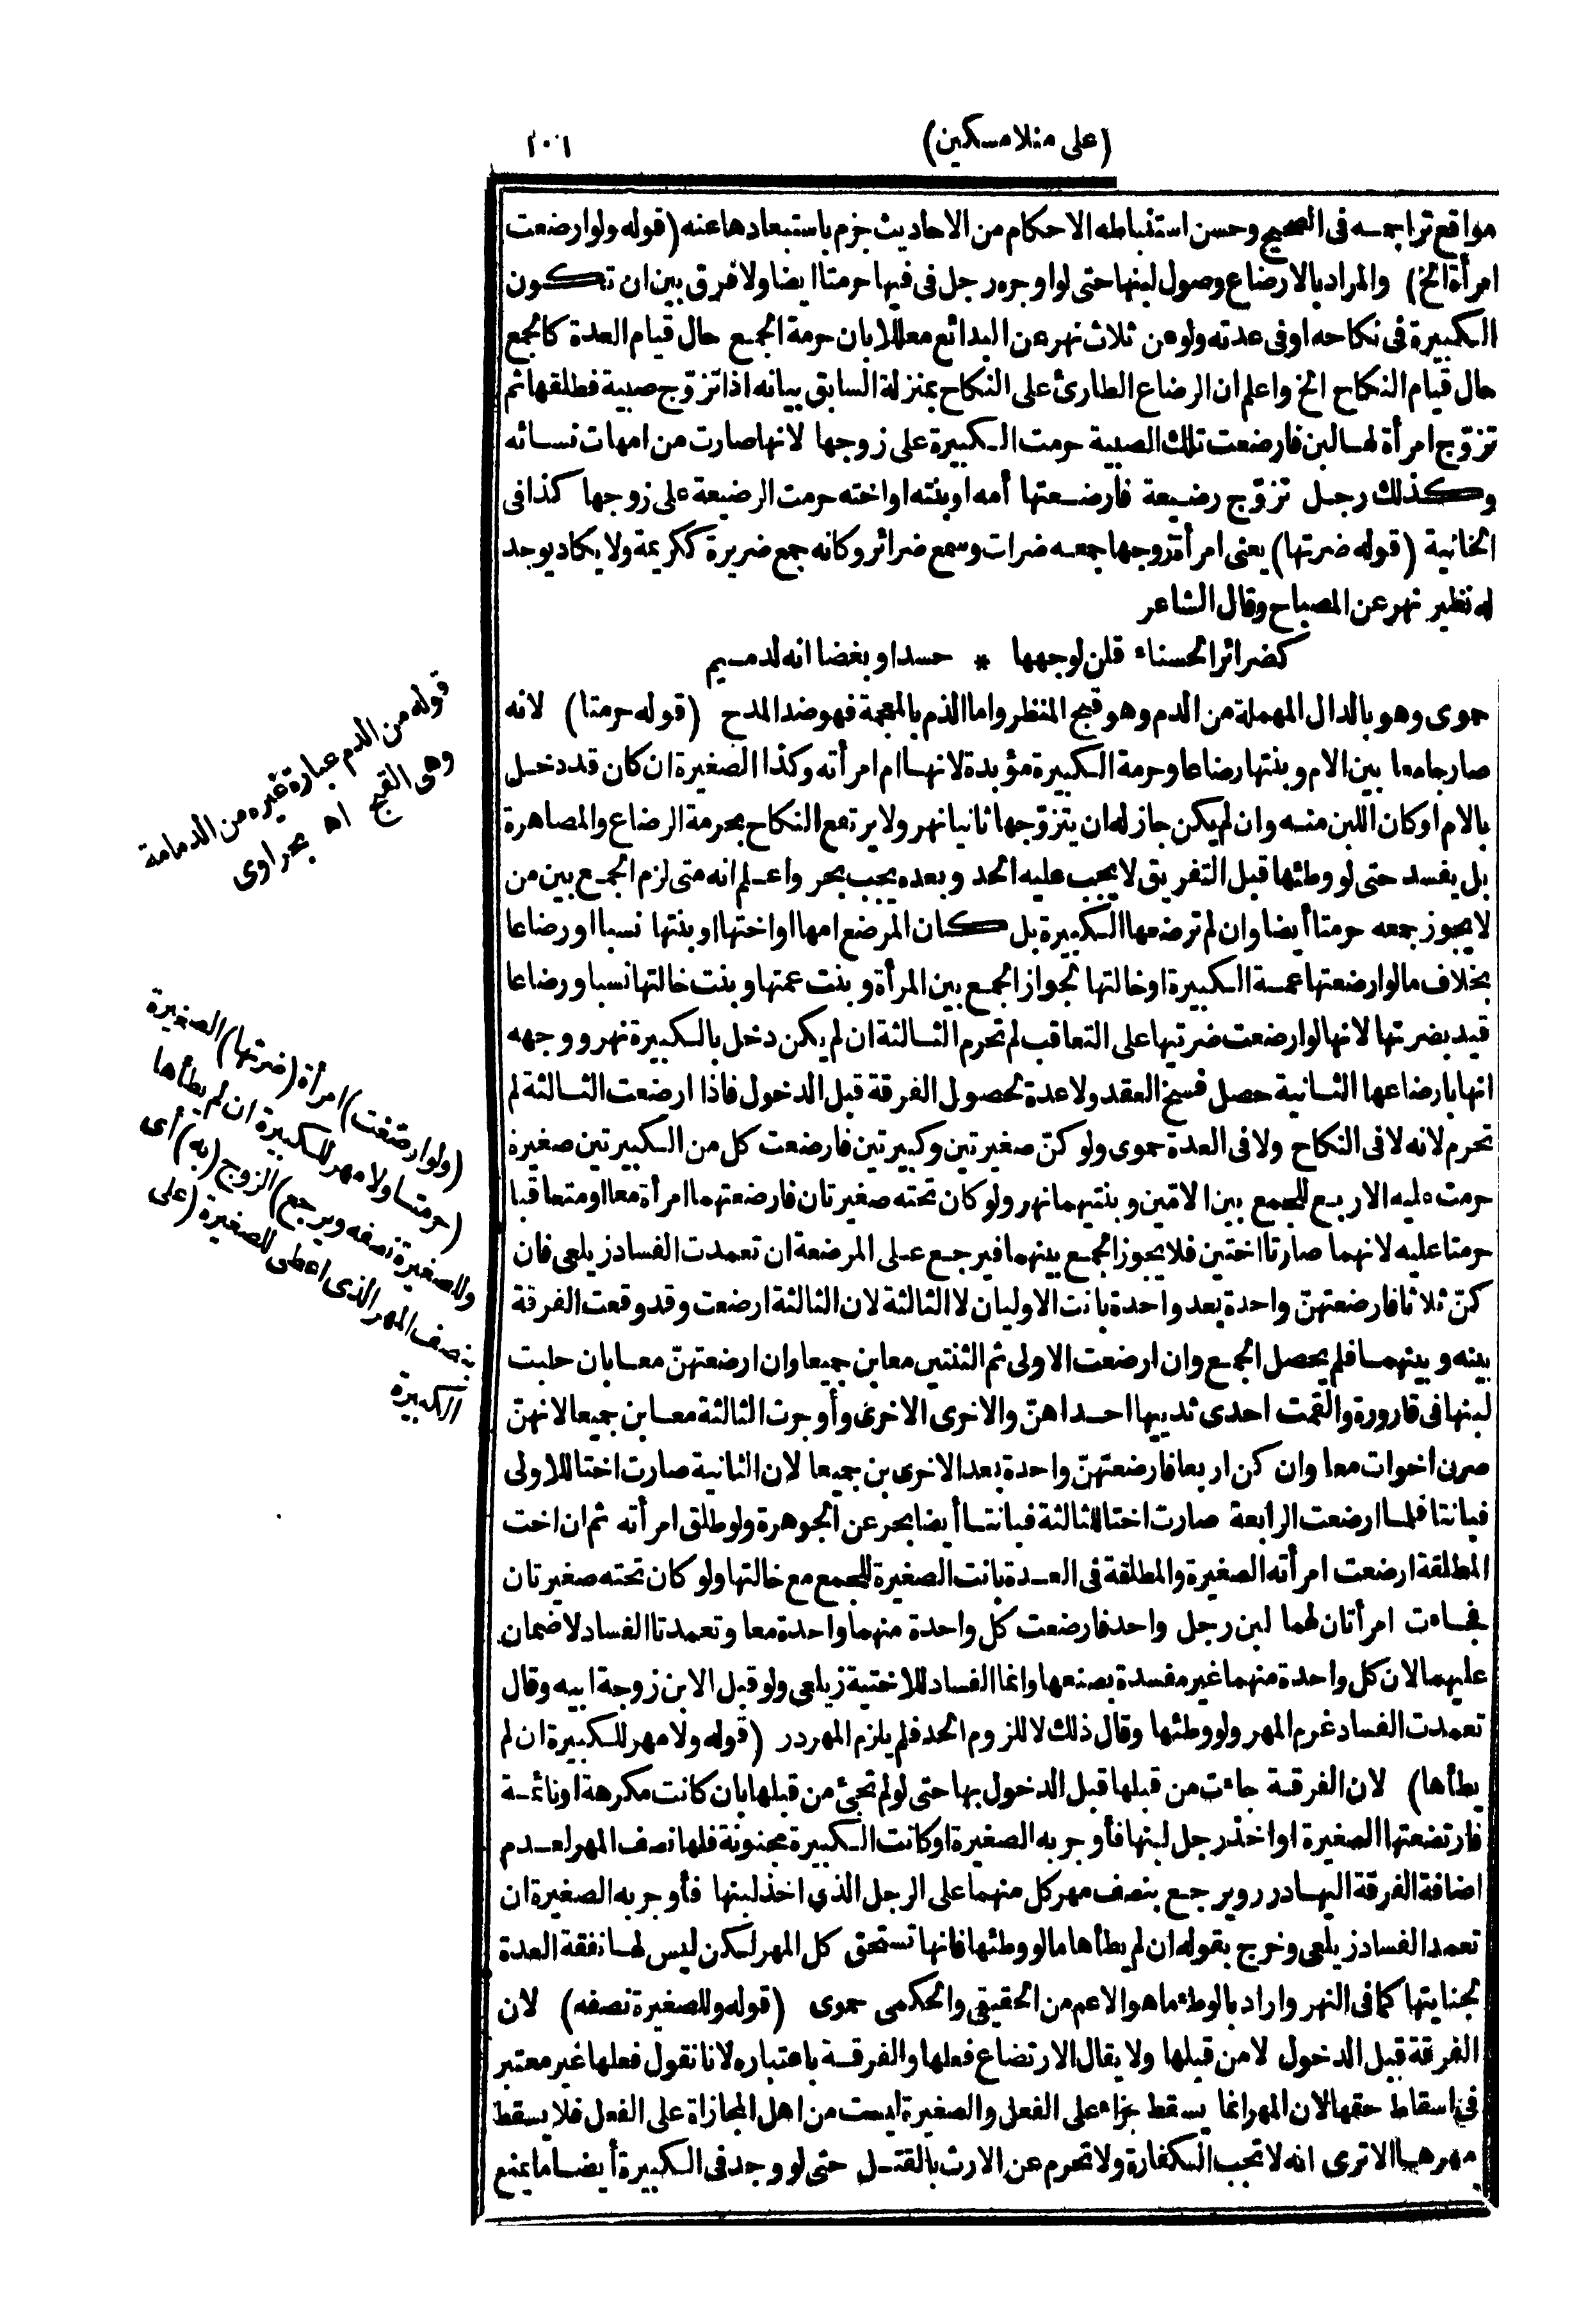 (على منلا مسكين)
١٠١
مواقع تراجمه فى الصحيح وحسن استنباطه الاحكام من الاحاديث جزم باستبعادها عنه (قوله ولوارضعت
امرأة الخ) والمراد بالارضاع وصول لبنها حتى لو اوجره رجل فى فيها حرمتا ايضا ولا فرق بين ان تكون
الكبيرة فى نكاحه اوفى عدته ولو عن ثلاث نهر عن البدائع معللا بان حرمة الجمع حال قيام العدة كالجمع
حال قيام النكاح الخ واعلم ان الرضاع الطارئ على النكاح بمنزلة السابق بيانه اذا تزوّج صبية فطلقها ثم
تزوّج امرأة لها لبن فارضعت تلك الصبية حرمت الكبيرة على زوجها لانها صارت من امهات نسائه
وكذلك رجل تزوّج رضيعة فأرضعتها أمه او بنته او اخته حرمت الرضيعة على زوجها كذا فى
الخانية (قوله ضرتها) يعنى امرأة زوجها جمعه ضرات وسمع ضرائر وكانه جمع ضريرة ككريمة ولا يكاد يوجد
له نظير نهر عن المصباح وقال الشاعر
كضرائر الحسناء قلن لوجهها * حسدا وبغضا انه لدميم
حموى وهو بالدال المهملة من الدم وهو قبح المنظر واما الذم بالمعجمة فهو ضد المدح (قوله حرمتا) لانه
صار جامعا بين الام وبنتها رضاعا وحرمة الكبيرة مؤبدة لانها ام امرأته وكذا الصغيرة ان كان قد دخل
بالام او كان اللبن منه وان لم يكن جاز له ان يتزوّجها ثانيا نهر ولا يرتفع النكاح بحرمة الرضاع والمصاهرة
بل يفسد حتى لو وطئها قبل التفريق لا يجب عليه الحد وبعده يجب بحر واعلم انه متى لزم الجمع بين من
لا يجوز جمعه حرمتا أيضا وان لم ترضعها الكبيرة بل كان المرضع امها او اختها او بنتها نسبا او رضاعا
بخلاف مالو ارضعتها عمة الكبيرة او خالتها لجواز الجمع بين المرأة وبنت عمتها وبنت خالتها نسبا ورضاعا
قيد بضرتها لانها لو ارضعت ضرتيها على التعاقب لم تحرم الثالثة ان لم يكن دخل بالكبيرة نهر ووجهه
انها بارضاعها الثانية حصل فسخ العقد ولا عدة لحصول الفرقة قبل الدخول فاذا ارضعت الثالثة لم
تحرم لانه لا فى النكاح ولا فى العدة حموى ولو كنّ صغيرتين وكبيرتين فارضعت كل من الكبيرتين صغيرة
حرمت عليه الاربع للجمع بين الامّين وبنتيهما نهر ولو كان تحته صغيرتان فارضعتهما امرأة معا او متعاقبا
حرمتا عليه لانهما صارتا اختين فلا يجوز الجمع بينهما فيرجع على المرضعة ان تعمدت الفساد زيلعى فان
كنّ ثلاثا فارضعتهنّ واحدة بعد واحدة بانت الاوليان لا الثالثة لان الثالثة ارضعت وقد وقعت الفرقة
بينه وبينهما فلم يحصل الجمع وان ارضعت الاولى ثم الثنتين معا بن جميعا وان ارضعتهنّ معا بان حلبت
لبنها فى قارورة والقمت احدى ثدييها احداهنّ والاخرى الاخرى وأوجرت الثالثة معا بن جميعا لانهنّ
صرن اخوات معا وان كن اربعا فارضعتهنّ واحدة بعد الاخرى بن جميعا لان الثانية صارت اختا للاولى
فبانتا فلما ارضعت الرابعة صارت اختا للثالثة فبانتا أيضا بحر عن الجوهرة ولو طلق امرأته ثم ان اخت
المطلقة ارضعت امرأته الصغيرة والمطلقة فى العدة بانت الصغيرة للجمع مع خالتها ولو كان تحته صغيرتان
فجاءت امرأتان لهما لبن رجل واحد فارضعت كل واحدة منهما واحدة معا وتعمدتا الفساد لا ضمان
عليهما لان كل واحدة منهما غير مفسدة بصنعها وانما الفساد للاختية زيلعى ولو قبل الابن زوجة ابيه وقال
تعمدت الفساد غرم المهر ولو وطئها وقال ذلك لا للزوم الحد فلم يلزم المهر درر (قوله ولا مهر للكبيرة ان لم
يطأها) لان الفرقة جاءت من قبلها قبل الدخول بها حتى لو لم تجئ من قبلها بان كانت مكرهة او نائمة
فارتضعتها الصغيرة او اخذ رجل لبنها فأوجر به الصغيرة او كانت الكبيرة مجنونة فلها نصف المهر لعدم
اضافة الفرقة اليها درر ويرجع بنصف مهر كل منهما على الرجل الذى اخذ لبنها فأوجر به الصغيرة ان
تعمد الفساد زيلعى وخرج بقوله ان لم يطأها مالو وطئها فانها تستحق كل المهر لكن ليس لها نفقة العدة
لجنايتها كما فى النهر واراد بالوطء ما هو الاعم من الحقيقى والحكمى حموى (قوله وللصغيرة نصفه) لان
الفرقة قبل الدخول لا من قبلها ولا يقال الارتضاع فعلها والفرقة باعتباره لانا نقول فعلها غير معتبر
فى اسقاط حقها لان المهر انما يسقط جزاء على الفعل والصغيرة ليست من اهل المجازاة على الفعل فلا يسقط
مهرها الا ترى انه لا تجب الكفارة ولا تحرم عن الارث بالقتل حتى لو وجد فى الكبيرة أيضا ما يمنع
قوله من الدم عبارة غيره من الدمامة
وهى القبح اه بحراوى
(ولو ارضعت) امرأة (ضرتها) الصغيرة
(حرمتا ولا مهر للكبيرة ان لم يطأها
وللصغيرة نصفه ويرجع) الزوج (به) أى
بنصف المهر الذى اعطى للصغيرة (على
الكبيرة